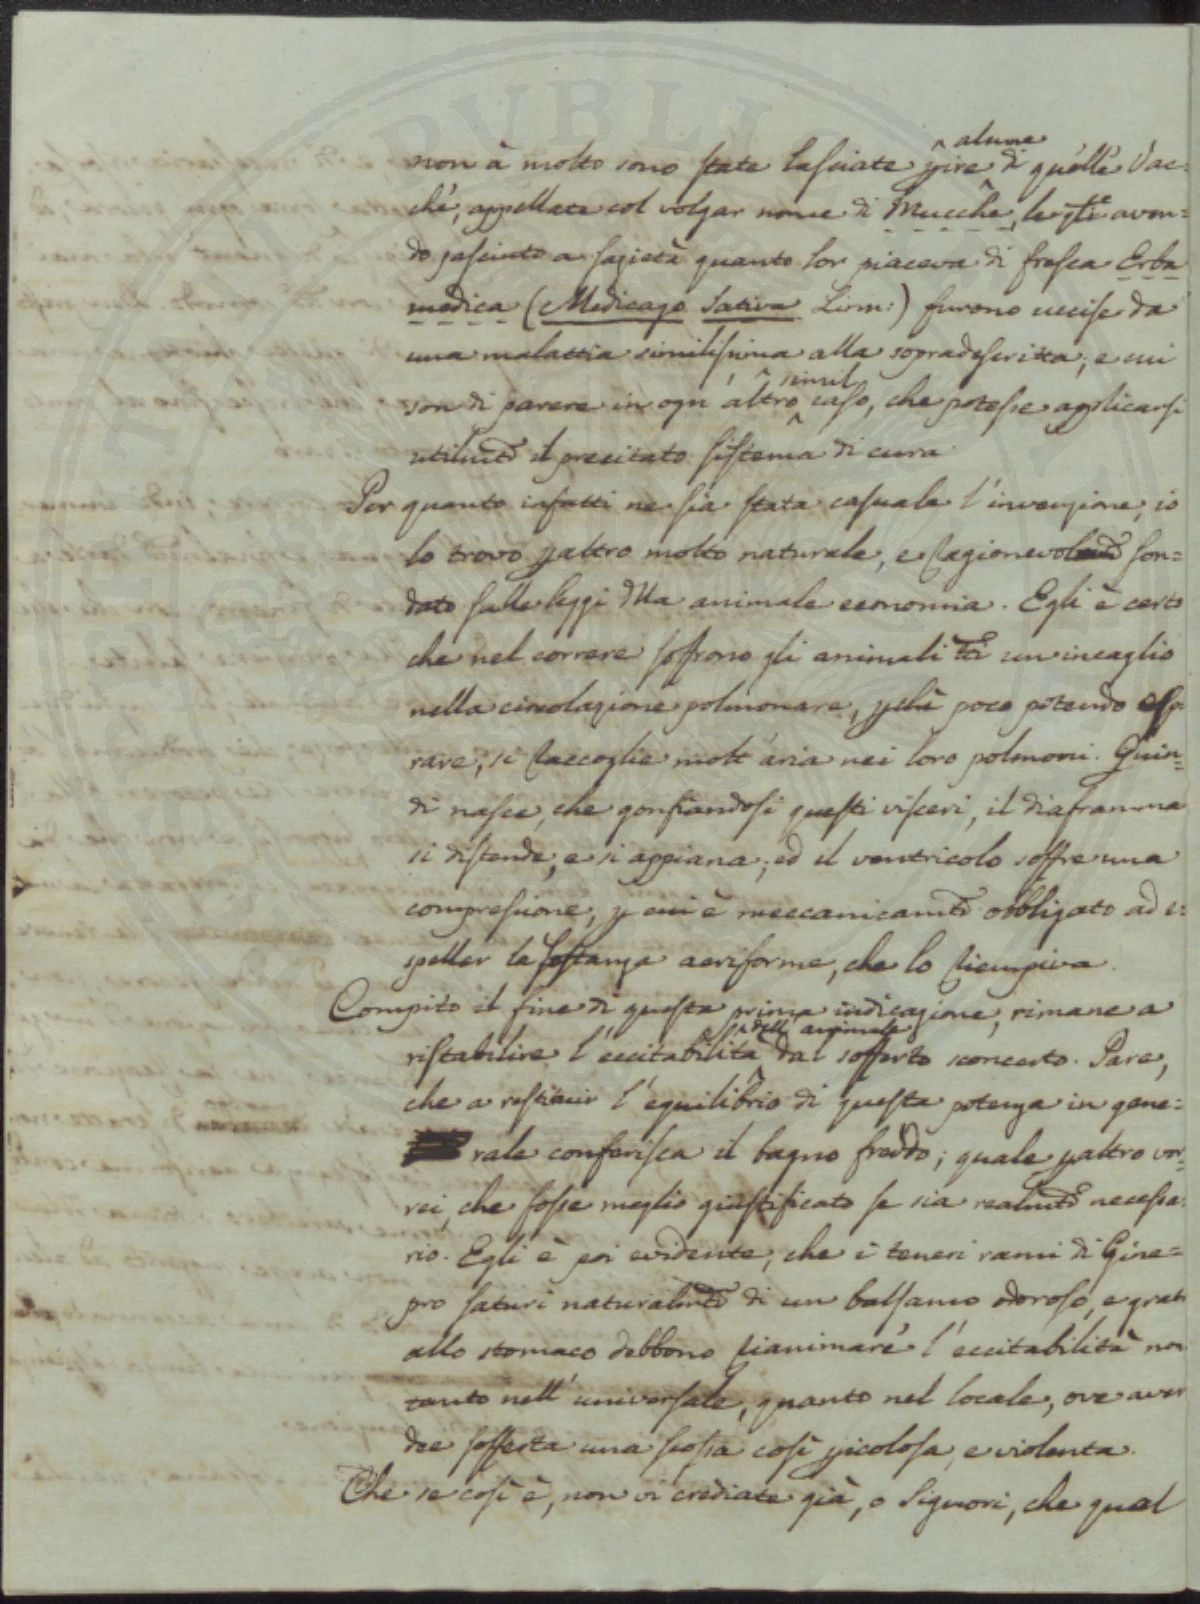 non à molto sono state lasciate pire di alcune quelle Vac=
che, appellate col volgar nome di Mucche, le qli aven=
do pasciuto a sazietà quanto lor piaceva di fresca Erba
medica (Medicago Sativa Linn:) furono uccise da
una malattia similissima alla sopradescritta; e cui
son di parere in ogn'altro simil caso, che potesse applicarsi
utilmte il precitato sistema di cura
Per quanto infatti ne sia stata casuale l'invenzione, io
lo trovo paltro molto naturale, e ragionevolmte fon=
dato sulle leggi dlla animale economia. Egli è certo
che nel correre soffrono gli animali tti un incaglio
nella circolazione polmonare, pchè poco potendo espi
rare, si raccoglie molt'aria nei loro polmoni. Quin=
di nasce, che gonfiandosi questi visceri, il diaframma
si distende, e si appiana, ed il ventricolo soffre una
compressione, p cui è meccanicamte obbligato ad e=
speller la sostanza aeriforme, che lo riempiva.
Compito il fine di questa prima indicazione, rimane a
ristabilire l'eccitabilità dell'animale dal sofferto sconcerto. Pare,
che a restituir l'equilibrio di questa potenza in gene=
rale conferisca il bagno freddo; quale paltro vor=
rei, che fosse meglio giustificato se sia realmte necessa=
rio. Egli è poi evidente, che i teneri rami di Gine=
pro saturi naturalmte di un balsamo odoroso, e grato
allo stomaco debbono rianimare l'eccitabilità non
tanto nell'universale, quanto nel locale, ove aver
dee sofferta una scossa così picolosa, e violenta.
Che se così è, non vi crediate già, o Signori, che quel